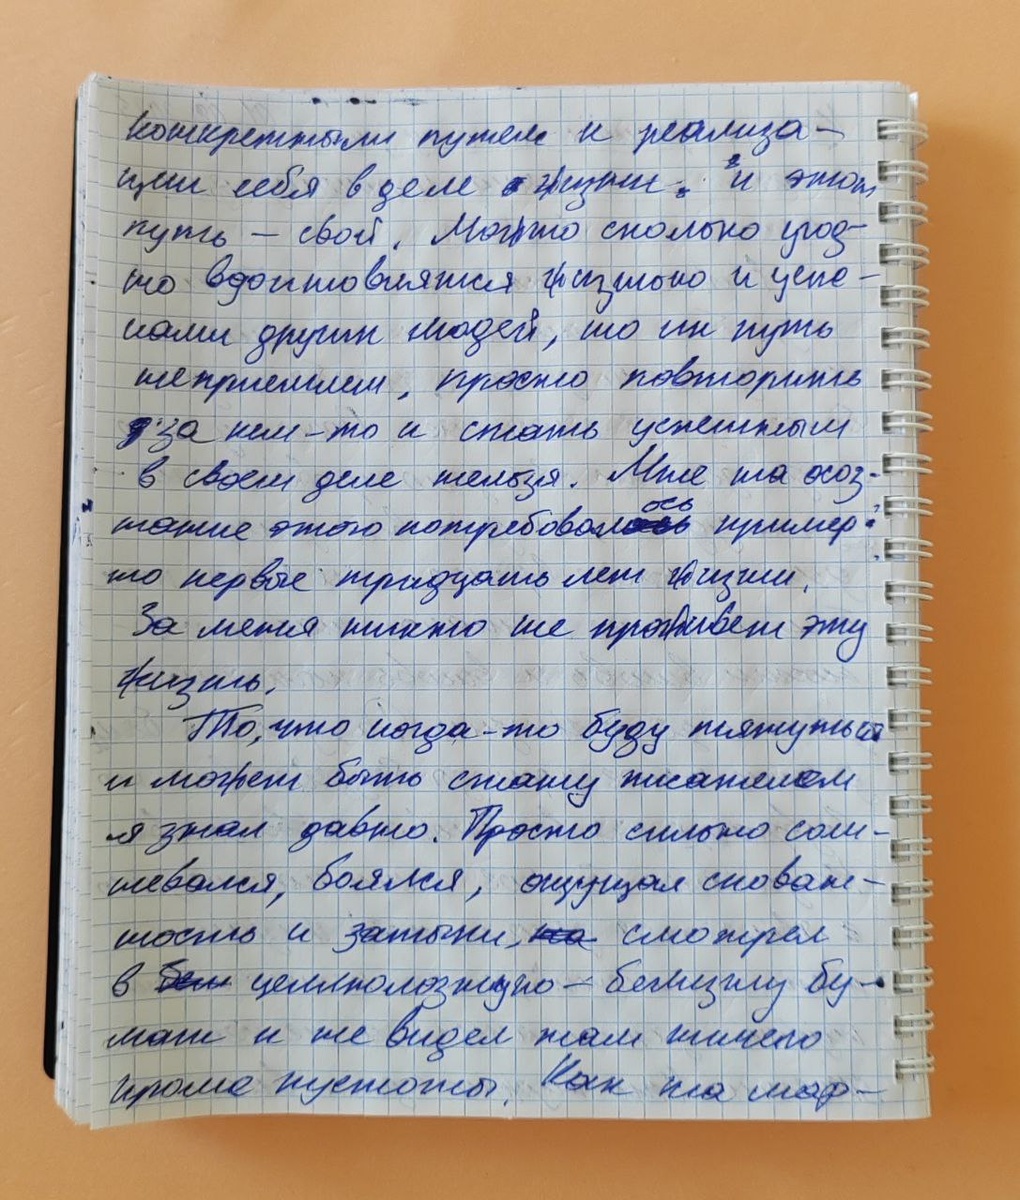 конкретным путем и реализа-
ции себя в деле жизни. и этот
путь – свой. Можно сколько угод-
но вдохновляться жизнью и успе-
хами других людей, но их путь
неприемлем, просто повторить
за кем-то и стать успешным
в своем деле нельзя. Мне на осоз-
нание этого потребовалось пример-
но первые тридцать лет жизни.
За меня никто не проживет эту
жизнь.
То, что когда-то буду
и может быть стану писателем
я знал давно. Просто сильно сом-
невался, боялся, ощущал скован-
ность и затыки, смотрел
в белизну бу-
маги и не видел там ничего
кроме пустоты. Как на мар-